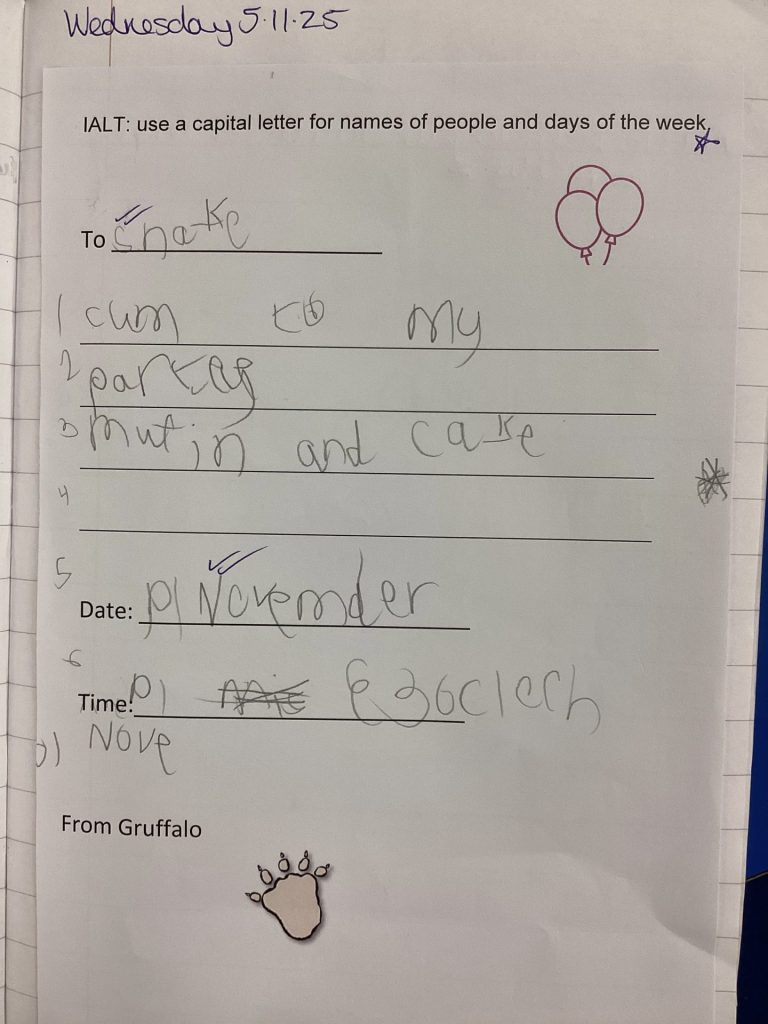 Wednesday 5.11.25
IALT: use a capital letter for names of people and days of the week
To snake
1 cum to my
2 partey
3 mutin and cake
4
5
Date: Novemder
6
Time:
Nove
From Gruffalo